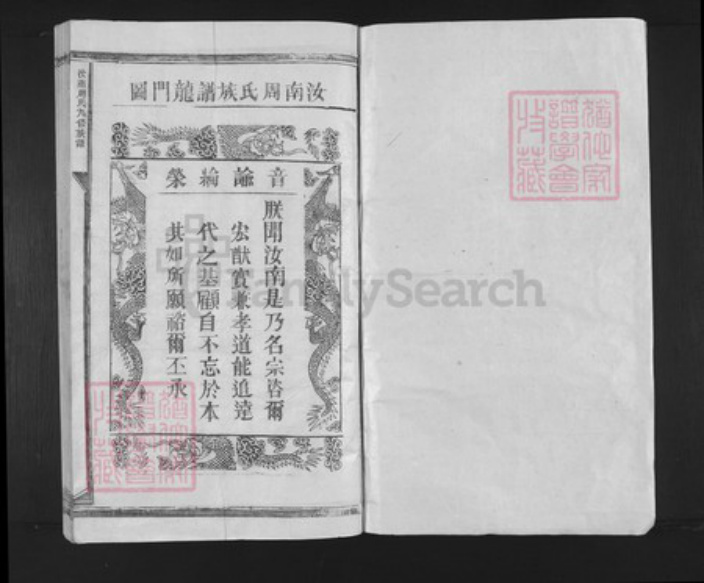 汝南周氏族譜龍門圖
音諭綸榮
朕聞汝南是乃名宗咨爾
宏猷實兼孝道能追遠
代之基顧自不忘於本
其如所願裕爾丕承
汝南周氏九修族譜
FamilySearch
猶他家譜學會收藏
猶他家譜學會收藏